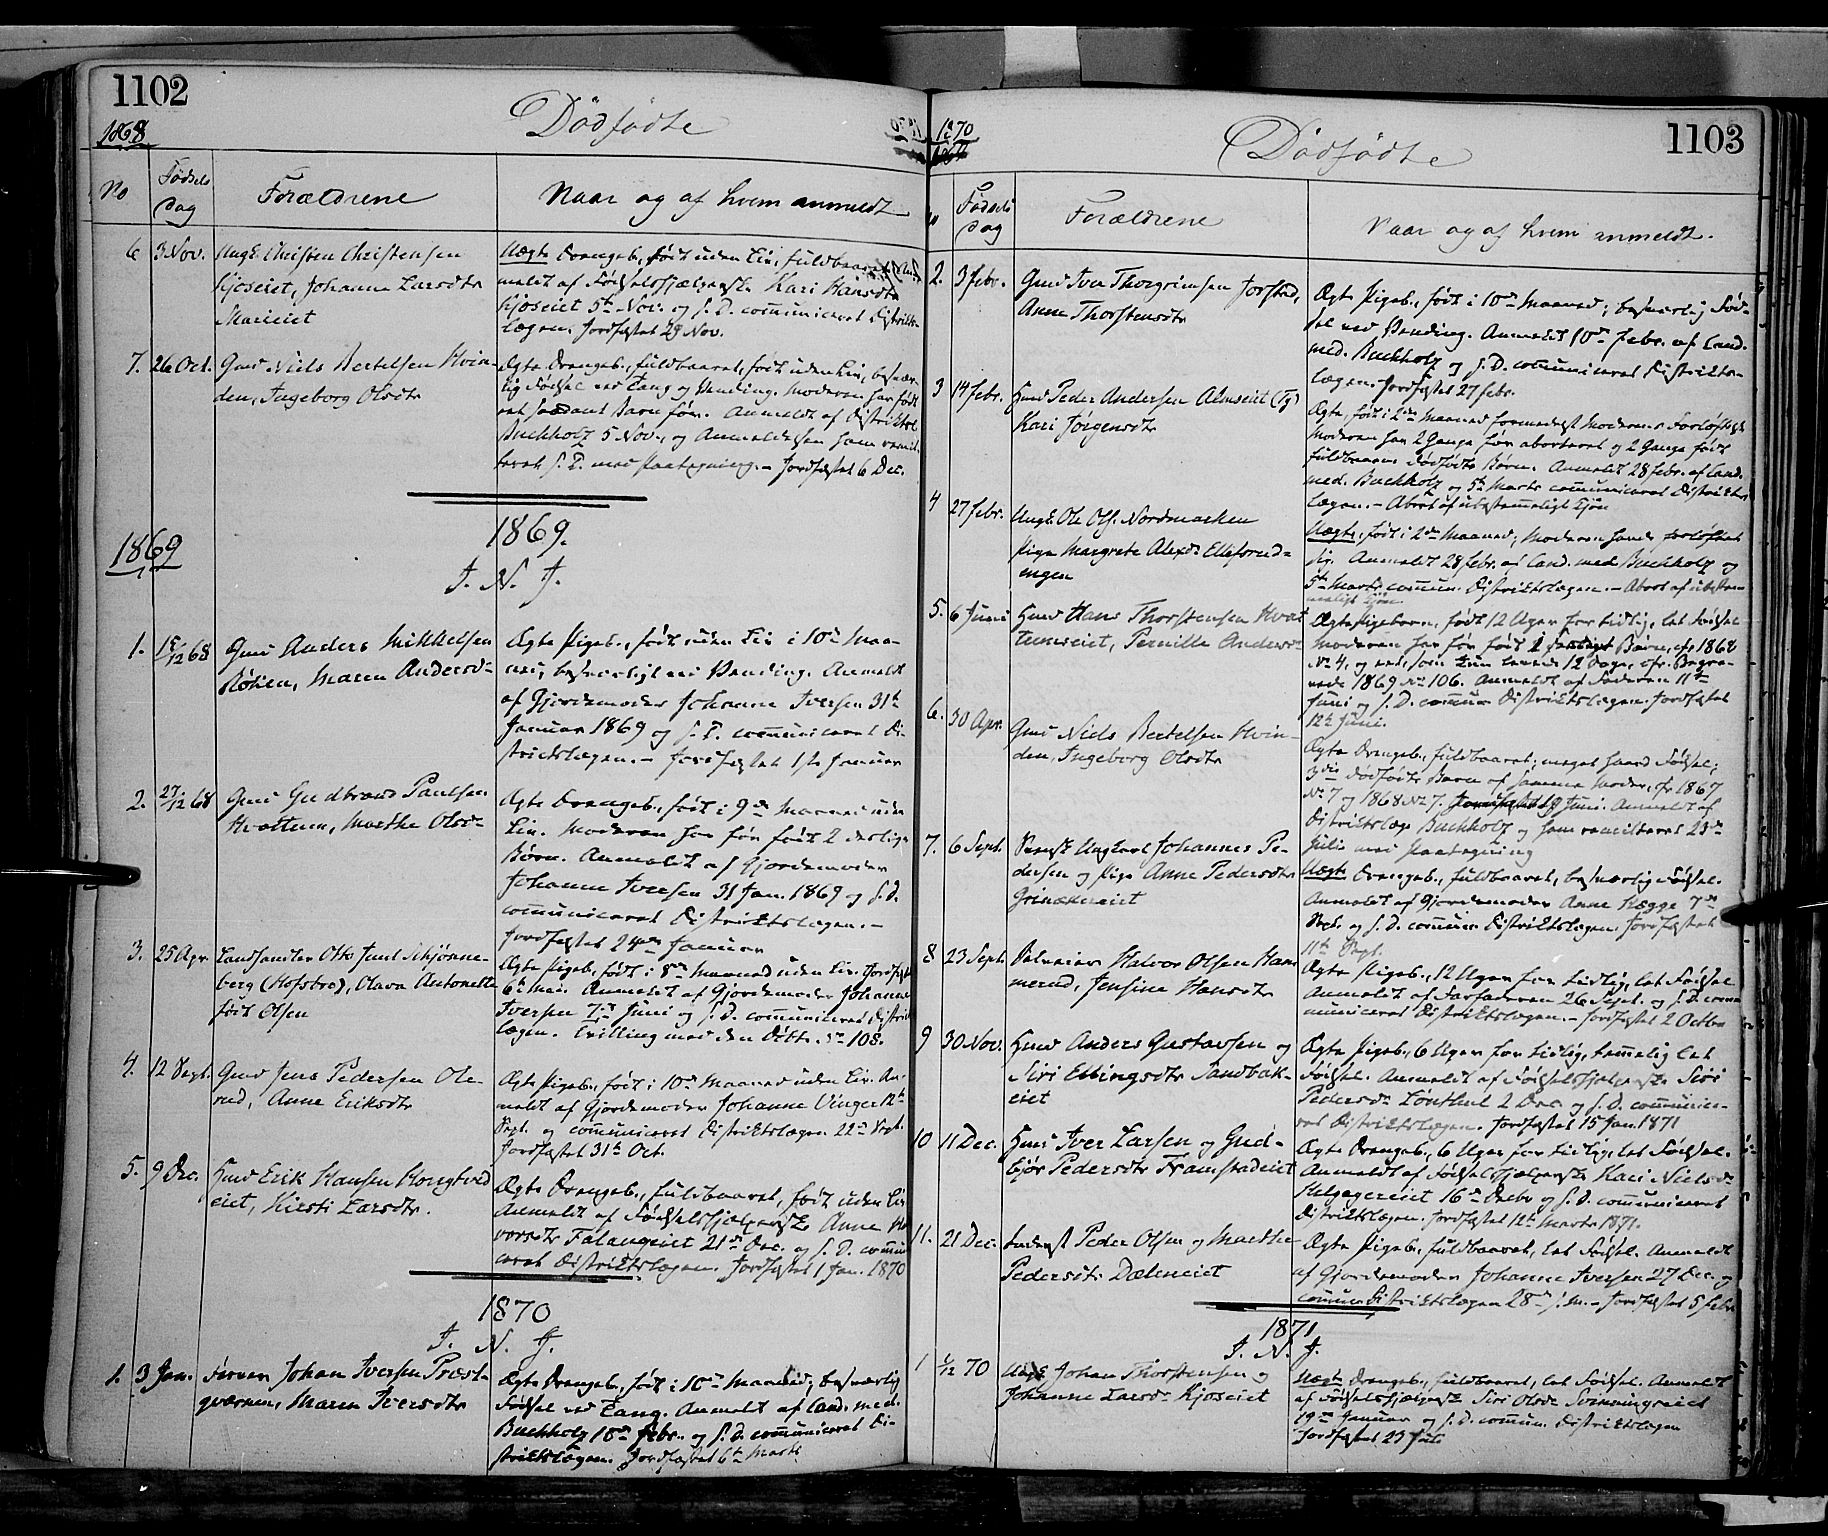 1102
1868
Dödfödte
No
Födsels
Dag
Forældrene
Naar og af hvem anmeldt
6 3 Nov. Ungk. Christen Christensen
Kjoseiet, Johanne Larsdtr
Uægte Drengeb., født uden Liv, fuldbaaret. An-
meldt af Fødselshjælperske Kari Hansdtr
Kjoseiet 5te Nov. og s. D. communiceret Distrikts-
lægen. Jordfæstet 29 Nov.
7. 26 Oct. Gmd Niels Bertelsen Hvin-
den, Ingeborg Olsdtr
Ægte Drengeb., fuldbaaret, født uden Liv, besvær-
lig Fødsel ved Tang og Vending. Moderen har født
et saadant Barn før. Anmeldt af Distriktsl.
Buchholz 5 Nov., og Anmeldelsen ham remit-
teret s. D. med Paategning. - Jordfæstet 6 Dec.
1869
1869.
I. N. J.
1. 15/12 68 Gmd Anders Mikkelsen
Røken, Maren Andersd-
Ægte Pigeb., født uden Liv i 10de Maa-
ned; besværligt ved Vending. Anmeldt
af Gjordemoder Johanne Iversen 31te
Januar 1869 og s. D. communiceret Di-
striktslægen. - Jordfæstet 1ste Januar
2. 27/12 68 Gmd Gudbrand Paulsen
Hvattum, Marthe Olsd-
Ægte Drengeb., født i 9de Maaned uden
Liv. Moderen har før født 2 deslige
Børn. Anmeldt af Gjordemoder
Johanne Iversen 31 Jan. 1869 og s. D.
communiceret Distriktslægen. -
Jordfæstet 24de Januar
3. 25 Apr. Landhandler Otto Juul Schjønne-
berg (Hofsbro), Olava Antonette
født Olsen
Ægte Pigeb., født i 8de Maaned uden Liv. Jordfæstet
6te Mai. Anmeldt af Gjordemoder Johanne
Iversen 7de Juni og s. D. communiceret Distrikts-
lægen. Tvilling med den Døbte No 108.
4. 12 Sept. Gmd Jens Pedersen Ole-
rud, Anne Eriksdtr
Ægte Pigeb., født i 10de Maaned uden Liv. An-
meldt af Gjordemoder Johanne Vinger 12te
Sept. og communiceret Distriktslægen 22de Sept.
Jordfæstet 31te Oct.
5. 9 Dec. Hmd Erik Hansen Hongtved
eiet, Kirsti Larsdtr.
Ægte Drengeb., fuldbaaret, født uden Liv
Anmeldt af Fødselshjælperske Anne Ha
vorsdtr Falangeiet 21de Dec. og s. D. commun
ceret Distriktslægen. Jordfæstet 1 Jan. 1870
1870
I. N. J.
1. 3 Jan. Farver Johan Iversen Præst-
qværnen, Maren Iversdtr
Ægte Drengeb., født i 10de Maaned; besværlig
Fødsel ved Tang. Anmeldt af Cand. med.
Buchholz 10de Febr. og s. D. communiceret Di-
striktslægen. Jordfæstet 6te Marts
1870
1103
Dödfödte
Födsels
Dag
Forældrene
Naar og af hvem anmeldt.
2. 3 Febr. Gmd Iver Thorgrimsen Jorstad,
Anne Thorstensdtr
Ægte Pigeb., født i 10de Maaned; besværlig Fød-
sel ved Vending. Anmeldt 10de Febr. af Cand.
med. Buchholz og s. D. communiceret Distrikts-
lægen. Jordfæstet 27 Febr.
3 14 Febr. Hmd Peder Andersen Almseiet
Kari Jørgensdtr
Ægte, født i 2den Maaned formedelst Moderens Forløftelse
Moderen har 2 Gange før aborteret og 2 Gange født
fuldbaarne dødfødte Børn. Anmeldt 28 Febr. af Cand.
med. Buchholz og 5te Marts communiceret Distrikts
lægen. - Abort af ubestemmeligt Kjøn
4 27 Febr. Ungk. Ole Ols. Nordmarken
Pige Margrete Alexdr Ellefsrud-
engen
Uægte, født i 2den Maaned; Moderen havde forløftet
sig. Anmeldt 28 Febr. af Cand. med Buchholz og
5te Marts commun. Distriktslægen. - Abort af ubestem-
meligt Kjøn
5. 6 Juni Hmd Hans Thorstensen Hvat
tumseiet, Pernille Andersdr
Ægte Pigebarn, født 12 Uger for tidlig, let Fødsel
Moderen har før født Børn, cfr 1868
No 4, og et, som kun levede 12 Dage, cfr. Begra-
vede 1869 No 106. Anmeldt af Faderen 11te
Juni og s. D. commun Distriktslægen. Jordfæstet
12te Juni.
6. 30 Apr. Gmd Niels Bertelsen Hvin-
den, Ingeborg Olsdtr
Ægte Drengeb., fuldbaaret; meget haard Fødsel;
3die dødfødte Barn af samme Moder, cfr 1867
No 7 og 1868 No 7. Jordfæstet 19 Juni. Anmeldt af
Distriktslæge Buchholz og ham remitteret 23de
Juli med Paategning
7. 6 Sept. Svensk Ungkarl Johannes Pe-
dersen og Pige Anne Pedersdtr
Grinakereiet
Uægte Drengeb., fuldbaaret, besværlig Fødsel.
Anmeldt af Gjordemoder Anne Hægge 7de
Sept. og s. D. commun Distriktslægen. Jordfæstet
11te Sept.
8 23 Sept. Halvor Olsen Ham
merud, Jensine Hansdtr
Ægte Pigeb., 12 Uger for tidlig, let Fødsel
Anmeldt af Farfaderen 26 Sept. og s. D. com-
municeret Distriktslægen. - Jordfæstet 2 Octbr
9 30 Nov. Hmd Anders Gustavsen og
Siri Ellingsdtr Sandbak-
eiet
Ægte Pigeb., 6 Uger for tidlig, temmelig let
Fødsel. Anmeldt af Fødselshjælperske Siri
Pedersdr Lønthul 2 Dec. og s. D. communice-
ret Distriktslægen. Jordfæstet 15 Jan. 1871
10 11 Dec. Hmd Iver Larsen og Gud-
bjør Pedersdtr Framstadeiet
Ægte Drengeb., 6 Uger for tidlig, let Fødsel.
Anmeldt af Fødselshjælperske Kari Nielsdr
Helgagereiet 16de Decbr og s. D. communiceret
Distriktslægen. Jordfæstet 12te Marts 1871.
11. 21 Dec. Inderst Peder Olsen og Marthe
Pedersdtr Dæleneiet
Ægte Pigeb., fuldbaaret, let Fødsel. Anmeldt
af Gjordemoder Johanne Iversen 27 Dec. og
commun Distriktslægen 28de s. M. - Jordfæstet 5 Febr
1871
I. N. J.
1 1/12 70 Ungk. Johan Thorstensen og
Johanne Larsdr Kjoseiet
Uægte Drengeb., fuldbaaret, let Fødsel. Anmeldt
af Fødselshjælperske Siri Olsdr Svinningseiet
19de Januar og s. D. commun. Distriktslægen
Jordfæstet 23 Juli